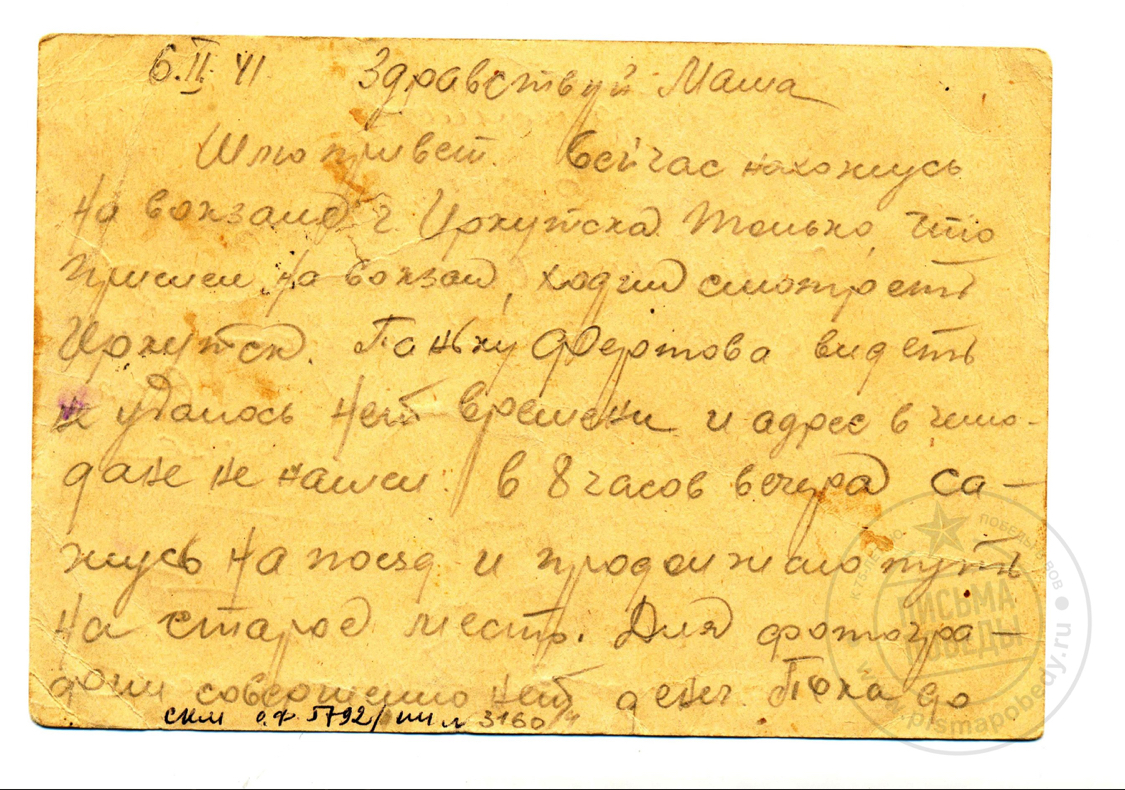 6.II.41 Здравствуй Маша
Шлю привет. Сейчас нахожусь
на вокзале г. Иркутска. Только что
пришел на вокзал, ходил смотреть
Иркутск. Паньку Фертова видеть
не удалось нет времени и адрес в чемо-
дане не нашел. в 8 часов вечера са-
жусь на поезд и продолжаю путь
на старое место. Для фотогра-
фии совершенно нет денег. Пока до
скм оф 5792/ 3160
К 75-ЛЕТИЮ ПОБЕДЫ
ПИСЬМА
ПОБЕДЫ
www.pismapobedy.ru